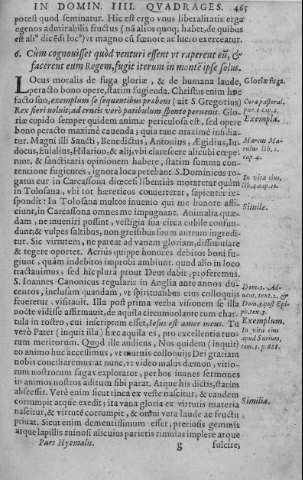 IN DOMIN. IIII. QVADRAGES. 465
potest quod seminatur. Hic est ergo vnus liberalitatis erga
egenos admirabilis fructus (nã alios quoq; habet, de quibus
est alias dicẽdi loc9) vt magno cũ fœnore ac lucro exerceatur.
6. Cùm cognouisset quòd venturi essent vt raperent eũ, &
facerent eum Regem, fugit iterum in montẽ ipse solus.
LOcus moralis de fuga gloriæ, & de humana laude,
peracto bono opere, statim fugienda. Christus enim hoc
facto suo, exemplum se sequentibus præbens (ait S. Gregorius)
Rex fieri noluit, ad crucis verò patibulum spontè peruenit. Glo-
riæ cupido semper quidem animæ periculosa est, sed opere
bono peracto maximè cauenda; quia tunc maximè insidia-
tur. Magni illi Sancti, Benedictus, Antonius, Ægidius, Iu-
docus, Eulalius, Hilarion, & alij, vbi clarescere alicubi cœpe-
runt, & sanctitatis opinionem habere, statim summa con-
tentione fugientes, ignota loca petebant. S. Dominicus ro-
gatus cur in Carcassona diœcesi libentiùs moraretur quàm
in Tolosana, vbi tot hæreticos conuerterat, sapienter re-
spondit: In Tolosana multos inuenio qui me honore affi-
ciunt, in Carcassona omnes me impugnant. Animalia quæ-
dam, ne inueniri possint, vestigia sua circa cubile confun-
dunt, & vulpes saltibus, non gressibus suum antrum ingredi-
tur. Sic virtutem, ne pateat ad vanam gloriam, dissimulare
& tegere oportet. At nos quippe honores debitos boni fu-
giunt, quàm indebitos improbi ambiunt. quod alio in loco
tractauimus: sed hîc plura prout Deus dabit, proferemus.
S. Ioannes Canonicus regularis in Anglia ante annos du-
centos, inclusam quandam, vt spiritualibus eius colloquijs
frueretur, visitauit. Illa post prima verba visionem se illa
nocte vidisse affirmauit, de aquila circumuolante cum char-
tula in rostro, cui inscriptum esset, Iesus est amor meus. Tu
verò Pater (inquit illa) hæc aquila es, pro excellentia tuo-
rum meritorum. Quod ille audiens, Nos quidem (inquit)
eo animo huc accessimus, vt mutuis colloquijs Dei gratiam
nobis conciliaremus: at nunc, vt video malus dæmon, vitio-
rum nostrorum sagax explorator, per hos inanes sermones
in animos nostros aditum sibi parat. Atque his dictis, statim
abscessit. Verè enim sicut tinea ex veste nascitur, & eandem
corrumpit atque exedit; ita vana gloria ex virtutis materia
nascitur, & virtutē corrumpit, & omni vera laude ac fructu
priuat. Sicut enim dementissimum esset, preciosis gemmis
atque lapillis ruinosi alicuius parietis rimulas implere atque
Pars Hyemalis. g fulcire,
Gloriæ fuga.
Cura pastoral.
par. 1. cap. 3.
Exempla.
Marcus Ma-
rulus lib. 2.
cap. 4.
In vita eius,
lib. 4. cap. 12.
Simile.
Exemplum.
In vita eius
apud Surium,
tom. 5. p. 868.
Similia.